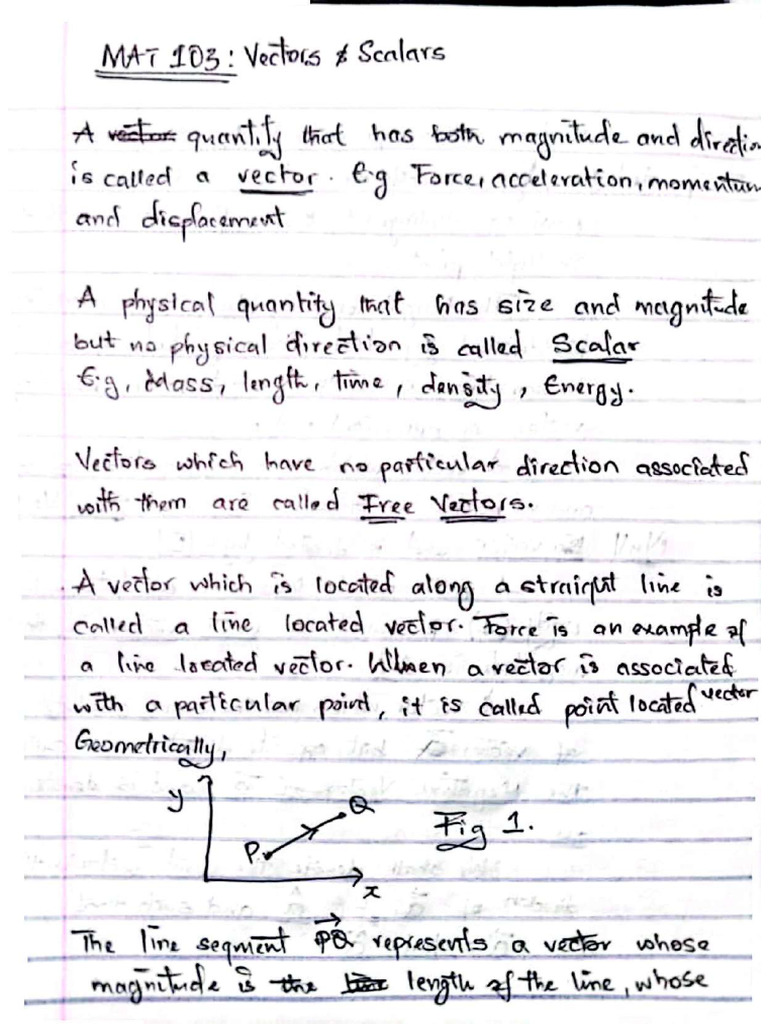 MAT 103: Vectors & Scalars
A vector quantity that has both magnitude and direction
is called a vector. E.g Force, acceleration, momentum
and displacement
A physical quantity that has size and magnitude
but no physical direction is called Scalar
E.g, Mass, length, time, density, Energy.
Vectors which have no particular direction associated
with them are called Free Vectors.
A vector which is located along a straight line is
called a line located vector. Force is an example of
a line located vector. When a vector is associated
with a particular point, it is called point located vector
Geometrically,
y
Q
Fig 1.
P
x
The line segment PQ represents a vector whose
magnitude is the line length of the line, whose